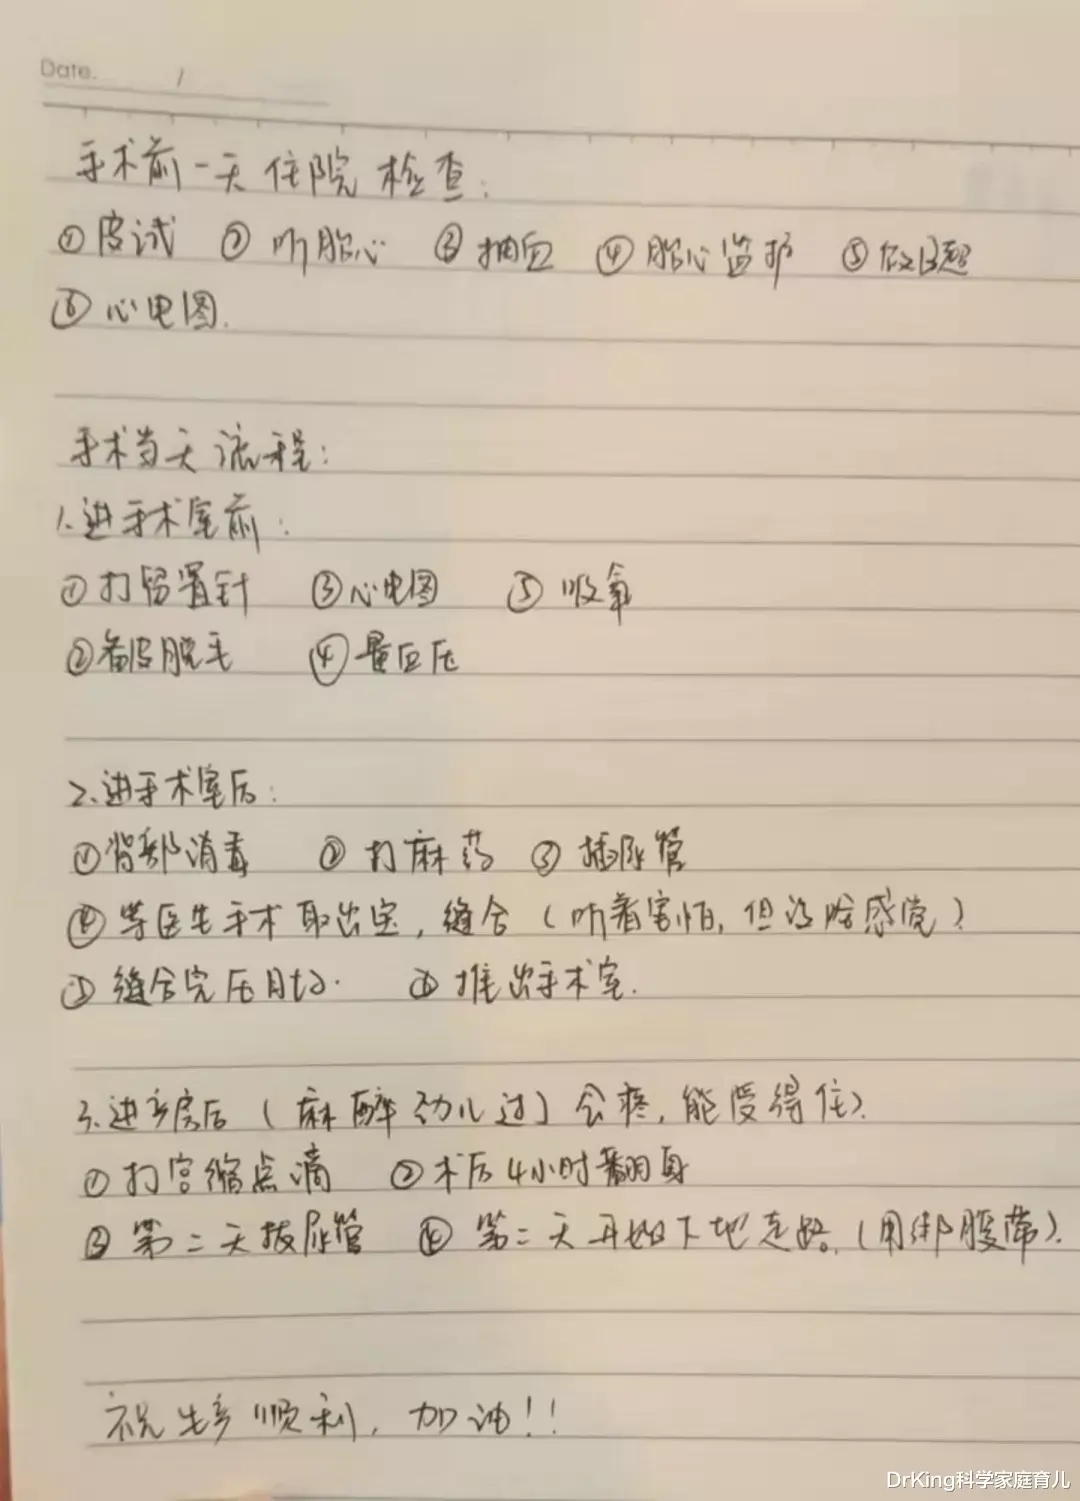 Date.      /
手术前一天住院检查:
①皮试 ②听胎心 ③抽血 ④胎心监护 ⑤做B超
⑥心电图.
手术当天流程:
1.进手术室前:
①打留置针 ③心电图 ⑤吸氧
②备皮脱毛 ④量血压
2.进手术室后:
①背部消毒 ②打麻药 ③插尿管
④等医生手术取出宝,缝合(听着害怕,但没啥感觉)
⑤缝合完压肚子. ⑥推出手术室.
3.进产房后(麻醉劲儿过)会疼,能受得住).
①打宫缩点滴 ②术后4小时翻身
③第二天拔尿管 ④第二天开始下地走路.(用绑腹带).
祝生产顺利,加油!!
DrKing科学家庭育儿